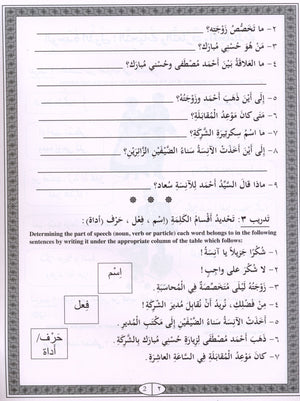 ٢- ما تَخَصُّصُ زَوْجَتِهِ؟
٣- مَنْ هُوَ حُسْنِي مُبارَك؟
٤- ما العَلاقَةُ بَيْنَ أَحْمَد مُصْطَفَى وحُسْنِي مُبارَك؟
٥- إِلَى أَيْنَ ذَهَبَ أَحْمَد وزَوْجَتُهُ؟
٦- مَتَى كانَ مَوْعِدُ المُقابَلَةِ؟
٧- ما اسْمُ سِكرتيرَةِ الشَّرِكَةِ؟
٨- إِلَى أَيْنَ أَخَذَتْ الآنِسَةُ سَناءُ الضَّيْفَيْنِ الزّائِرَيْنِ؟
٩- ماذا قالَ السَّيِّدُ أَحْمَد لِلآنِسَةِ سُعاد؟
تدريب ٣: تَحْديدُ أَقْسامِ الكَلِمَةِ (اسْم ، فِعْل ، حَرْف / أَداة):
Determining the part of speech (noun, verb or particle) each word belongs to in the following
sentences by writing it under the appropriate column of the table which follows:
١- شُكْرًا جَزيلًا يا آنِسَة!
٢- لا شُكْرَ عَلَى واجِبٍ!
٣- زَوْجَتُهُ لَيْلَى مُتَخَصِّصَةٌ فِي المُحاسَبَةِ.
٤- مِنْ فَضْلِكِ، نُريدُ أَنْ نُقابِلَ مُديرَ الشَّرِكَةِ!
٥- أَخَذَتْ الآنِسَةُ سَناءُ الضَّيْفَيْنِ إِلَى مَكْتَبِ المُديرِ.
٦- ذَهَبَ أَحْمَد مُصْطَفَى لِزِيارَةِ حُسْنِي مُبارَك بِالشَّرِكَةِ.
٧- كانَ مَوْعِدُ المُقابَلَةِ فِي السّاعَةِ العاشِرَةِ.
اِسْم
فِعل
حَرْف/
أداة
2 ٢